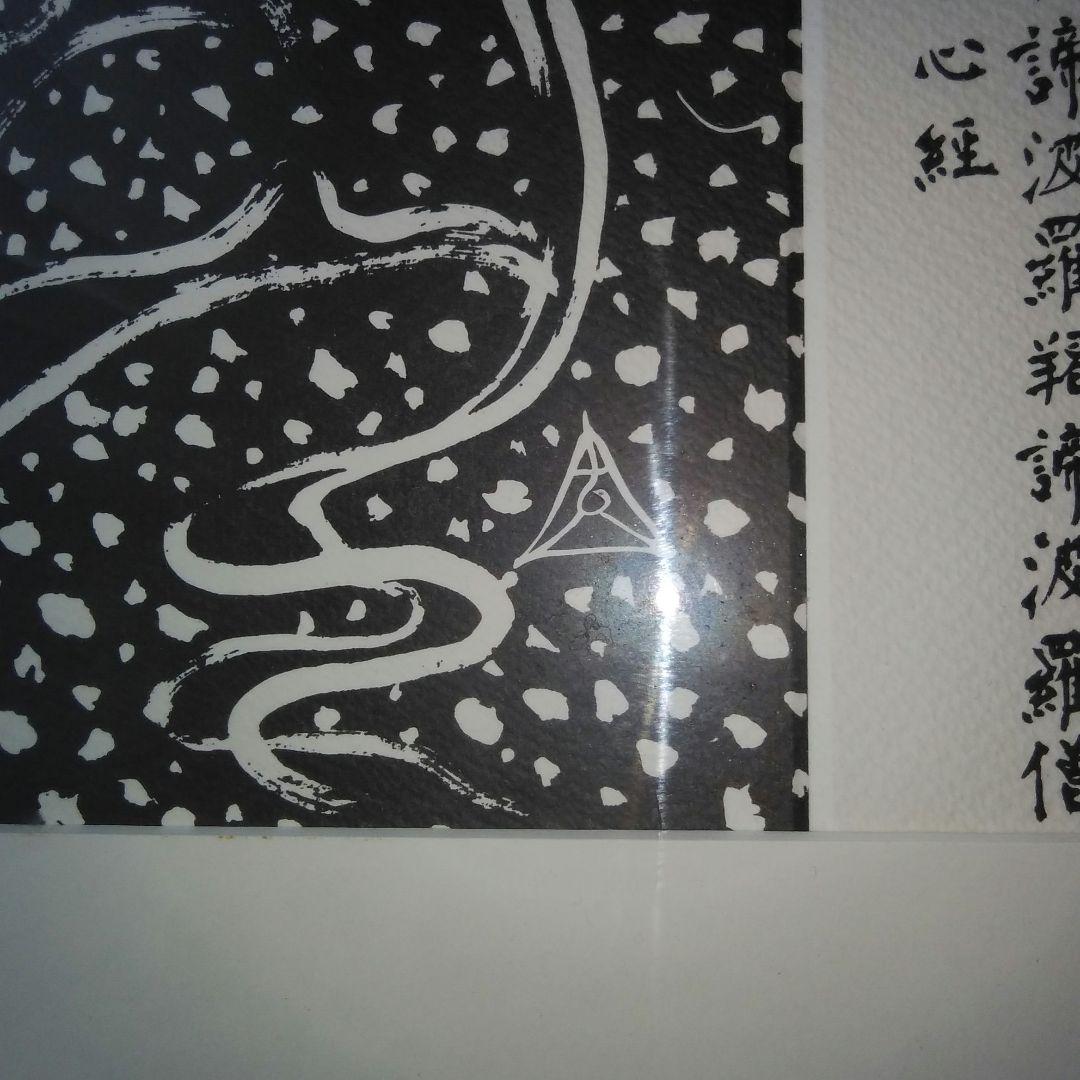 諦波羅羯諦波羅僧
心經